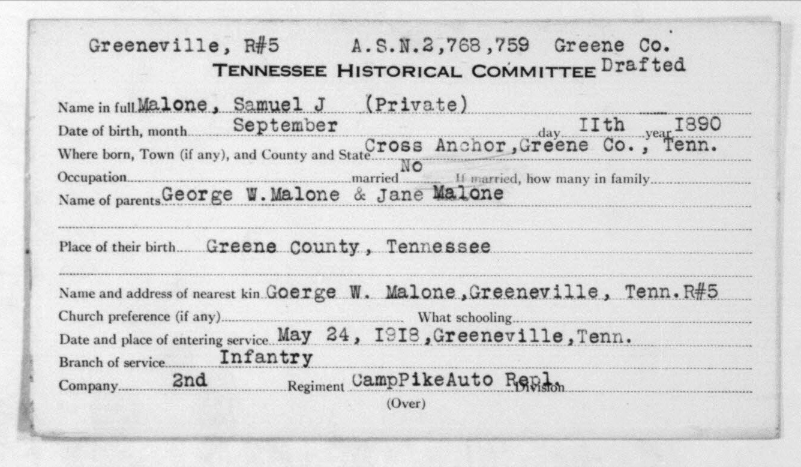 Greeneville, R#5 A.S.N.2,768,759 Greene Co.
TENNESSEE HISTORICAL COMMITTEE Drafted
Name in full Malone, Samuel J (Private)
Date of birth, month September day IIth year I890
Where born, Town (if any), and County and State Cross Anchor, Greene Co., Tenn.
Occupation married No If married, how many in family
Name of parents George W. Malone & Jane Malone
Place of their birth Greene County, Tennessee
Name and address of nearest kin Goerge W. Malone, Greeneville, Tenn. R#5
Church preference (if any) What schooling
Date and place of entering service May 24, I9I8, Greeneville, Tenn.
Branch of service Infantry
Company 2nd Regiment CampPikeAuto Repl. Division
(Over)